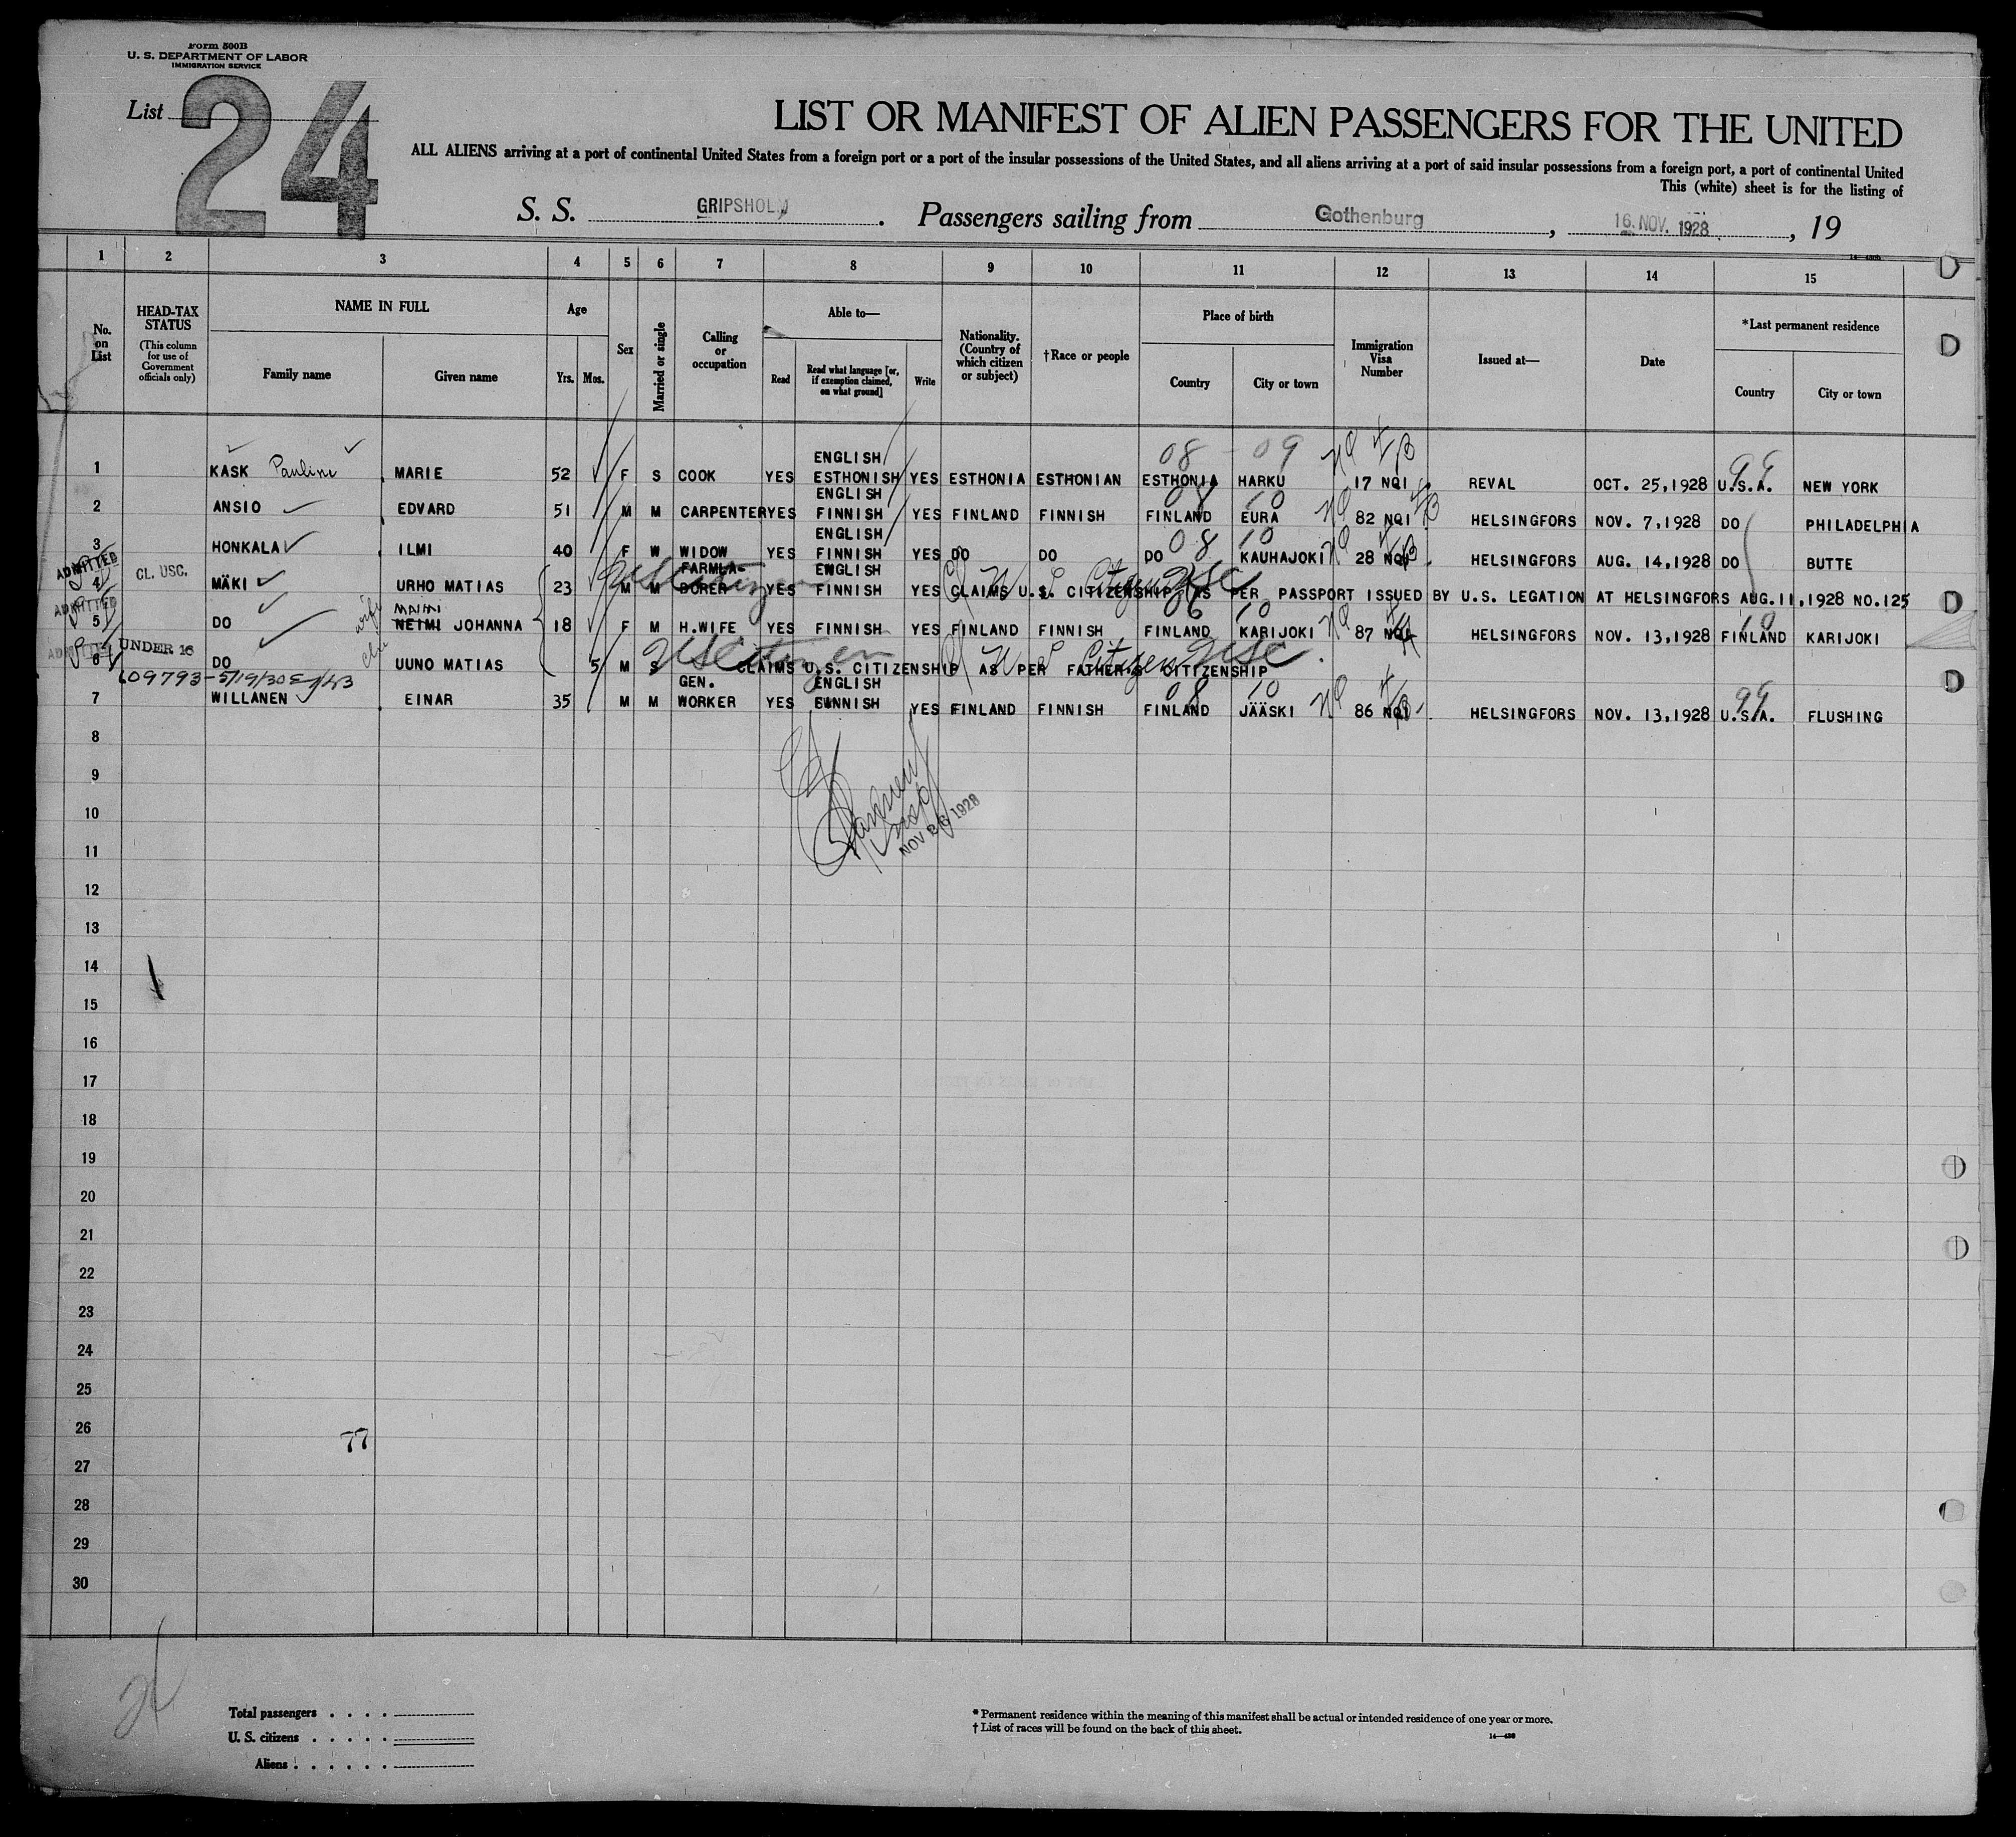 Form 500B
U. S. DEPARTMENT OF LABOR
IMMIGRATION SERVICE
List 24
LIST OR MANIFEST OF ALIEN PASSENGERS FOR THE UNITED
ALL ALIENS arriving at a port of continental United States from a foreign port or a port of the insular possessions of the United States, and all aliens arriving at a port of said insular possessions from a foreign port, a port of continental United
This (white) sheet is for the listing of
S. S. GRIPSHOLM. Passengers sailing from Gothenburg, 16. NOV. 1928, 19
1 2 3 4 5 6 7 8 9 10 11 12 13 14 15
No. on List
HEAD-TAX STATUS
(This column for use of Government officials only)
NAME IN FULL
Family name
Given name
Age
Yrs. Mos.
Sex
Married or single
Calling or occupation
Able to—
Read
Read what language [or, if exemption claimed, on what ground]
Write
Nationality. (Country of which citizen or subject)
†Race or people
Place of birth
Country
City or town
Immigration Visa Number
Issued at—
Date
*Last permanent residence
Country
City or town
08 - 09 99
1 KASK Pauline MARIE 52 F S COOK YES ENGLISH ESTHONISH YES ESTHONIA ESTHONIAN ESTHONIA HARKU 17 NQI REVAL OCT. 25,1928 U.S.A. NEW YORK
08 10
2 ANSIO EDVARD 51 M M CARPENTER YES ENGLISH FINNISH YES FINLAND FINNISH FINLAND EURA 82 NQI HELSINGFORS NOV. 7,1928 DO PHILADELPHIA
08 10
3 HONKALA ILMI 40 F W WIDOW YES ENGLISH FINNISH YES DO DO DO KAUHAJOKI 28 NQI HELSINGFORS AUG. 14,1928 DO BUTTE
ADMITTED
4 CL. USC. MÄKI URHO MATIAS 23 M M FARMLABORER YES ENGLISH FINNISH YES CLAIMS U.S. CITIZENSHIP AS PER PASSPORT ISSUED BY U.S. LEGATION AT HELSINGFORS AUG.11,1928 NO.125
US Citizen U S Citizen USC
ADMITTED
5 DO wife MAIMI NEIMI JOHANNA 18 F M H.WIFE YES FINNISH YES FINLAND FINNISH FINLAND KARIJOKI 87 HELSINGFORS NOV. 13,1928 FINLAND KARIJOKI
ADMITTED
6 UNDER 16 DO UUNO MATIAS 5 M S CLAIMS U.S. CITIZENSHIP AS PER FATHER'S CITIZENSHIP
US Citizen U S Citizen USC
609793-5/19/30
08 10 99
7 WILLANEN EINAR 35 M M GEN. WORKER YES ENGLISH FINNISH YES FINLAND FINNISH FINLAND JÄÄSKI 86 NQI HELSINGFORS NOV. 13,1928 U.S.A. FLUSHING
8
Insp
NOV 26 1928
9
10
11
12
13
14
15
16
17
18
19
20
21
22
23
24
25
26
77
27
28
29
30
Total passengers . . . .
U. S. citizens . . . . .
Aliens . . . . . .
* Permanent residence within the meaning of this manifest shall be actual or intended residence of one year or more.
† List of races will be found on the back of this sheet.